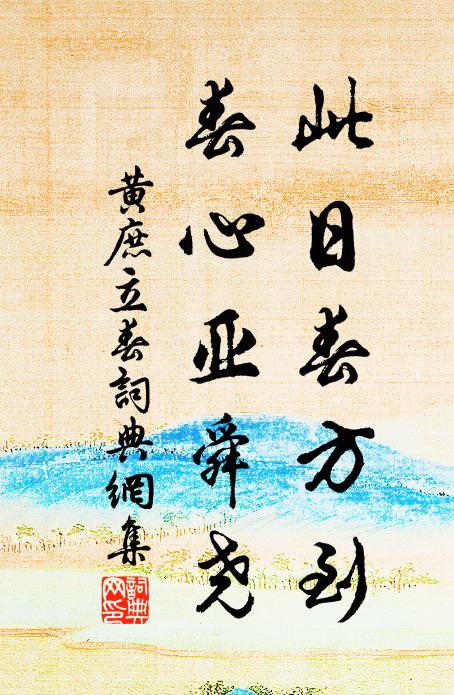 此日春方到
春心亚舜尧
黄庶立春詞典網集
詞典